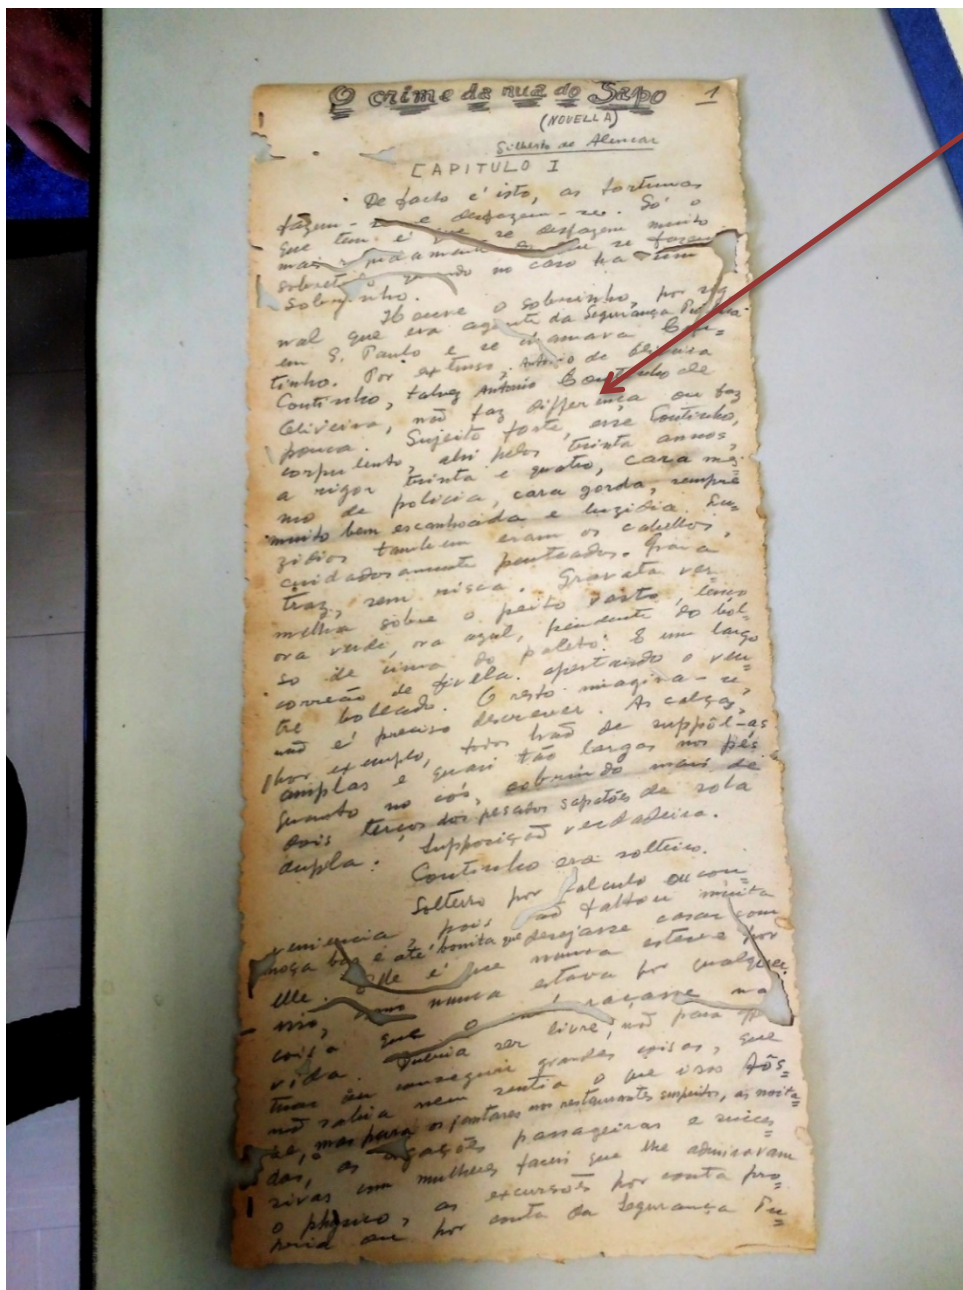 O crime da rua do Sapo 1
(NOVELLA)
Gilberto de Alencar
CAPITULO I
De facto é isto, as fortunas
fazem-se e desfazem-se. Só o
que tem é que se desfazem muito
mais se fazem
sobretudo quando no caso ha um
sobrinho.
Houve o sobrinho, por sig-
nal que era agente da Segurança Publica
em S. Paulo e se chamava Cou-
tinho. Por extenso, Antonio de Oliveira
Coutinho, talvez Antonio Coutinho de
Oliveira, não faz differença ou faz
pouca. Sujeito forte, esse Coutinho,
corpulento, ahi pelos trinta annos,
a rigor trinta e quatro, cara mes-
mo de policia, cara gorda, sempre
muito bem escanhoada e luzidia. Lu-
zidios tambem eram os cabellos,
cuidadosamente penteados. Para
traz, sem risca. Gravata ver-
melha sobre o peito vasto, lenço
ora verde, ora azul, pendente do bol-
so de cima do paletó. E um largo
correão de fivela apertando o ven-
tre boleado. O resto imagina-se,
não é preciso descrever. As calças,
por exemplo, todos hão de suppôl-as
amplas e quasi tão largas nos pés
quanto no cós, cobrindo mais de
dois terços dos pesados sapatões de sola
dupla. Supposição verdadeira.
Coutinho era solteiro.
Solteiro por calculo ou con-
veniencia, pois não faltou muita
moça boa e até bonita que desejasse casar com
elle. Elle é que nunca esteve por
isso, como nunca estava por qualquer
coisa que o embaraçasse na
vida. Queria ser livre, não para
conseguir grandes coisas, que
não sabia nem sentia o que isso fôs-
se, mas para os jantares nos restaurantes suspeitos, as noita-
das, as ligações passageiras e succes-
sivas com mulheres faceis que lhe admiravam
o physico, as excursões por conta pro-
pria ou por conta da Segurança Pu-